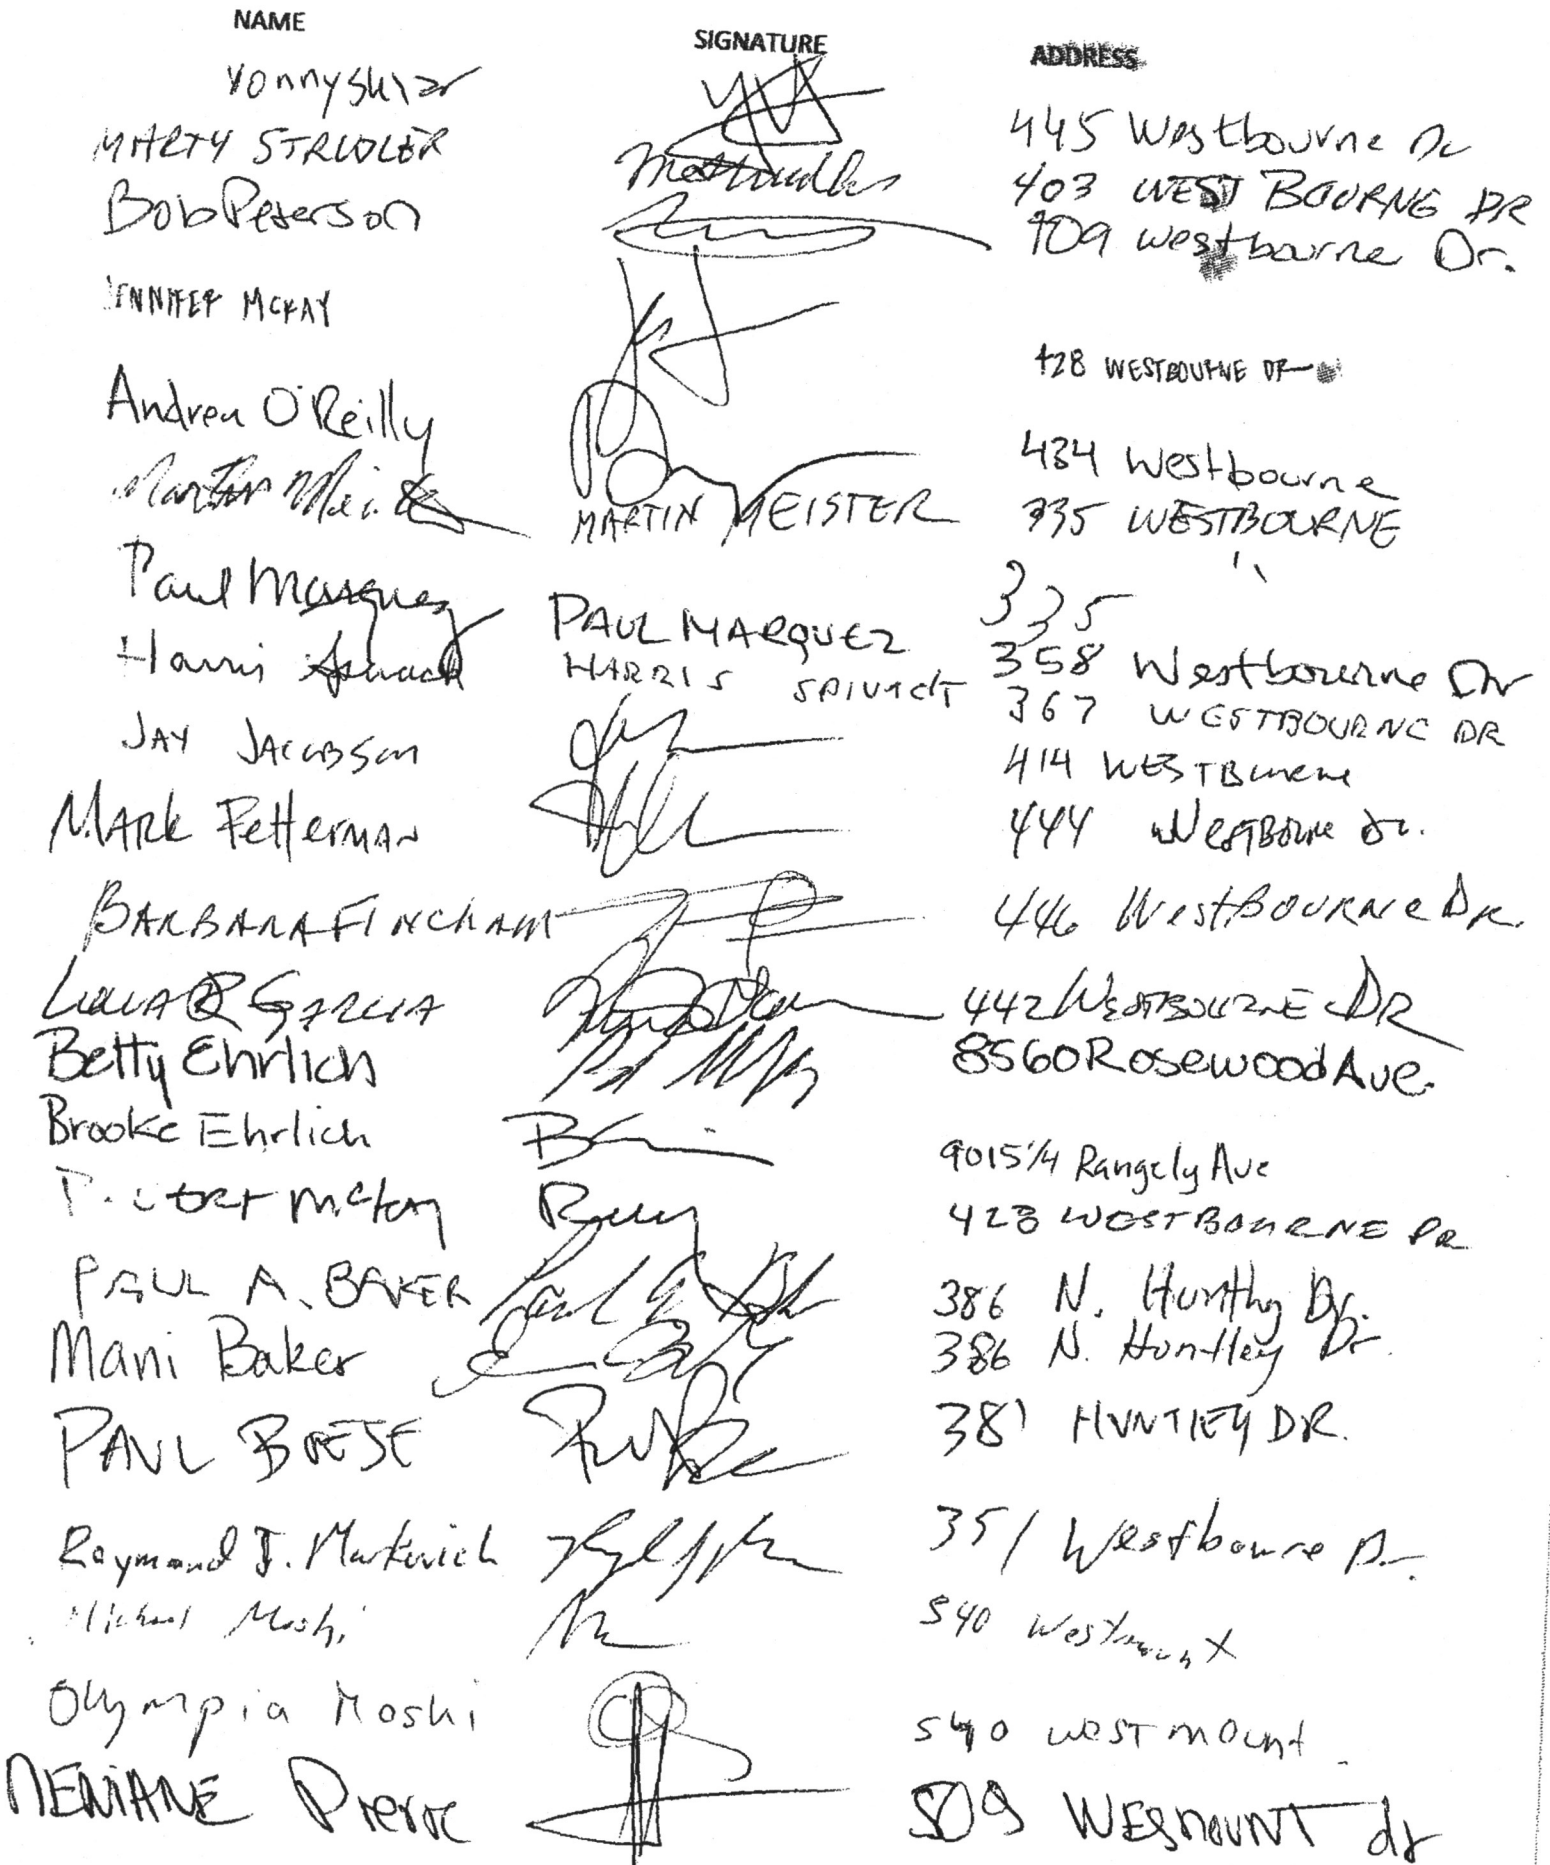 NAME SIGNATURE ADDRESS
Yonny 445 Westbourne Dr
MARTY STRUDLER 403 WEST BOURNE DR
Bob Peterson 409 Westbourne Dr.
JENNIFER MCKAY 428 WESTBOURNE DR
Andrea O'Reilly 434 Westbourne
Martin MARTIN MEISTER 335 WESTBOURNE
Paul Marquez PAUL MARQUEZ 335 "
Harris Spivack HARRIS SPIVACK 358 Westbourne Dr
367 WESTBOURNE DR
JAY JACOBSON 414 WESTBourne
MARK FettermAN 444 WestBourne Dr.
BARBARA FINCHAM 446 WestBOURNE DR.
GARCIA 442 WESTBOURNE DR
Betty Ehrlich 8560 Rosewood Ave.
Brooke Ehrlich 9015 1/4 Rangely Ave
McKay 428 WESTBOURNE DR
PAUL A. BAKER 386 N. Huntley Dr.
Mani Baker 386 N. Huntley Dr.
PAUL BOESE 381 HUNTLEY DR.
Raymond J. Markovich 351 Westbourne Dr.
Michael Moshi 540 Westmount
Olympia Moshi 540 westmount.
Pierre 509 WESMOUNT dr